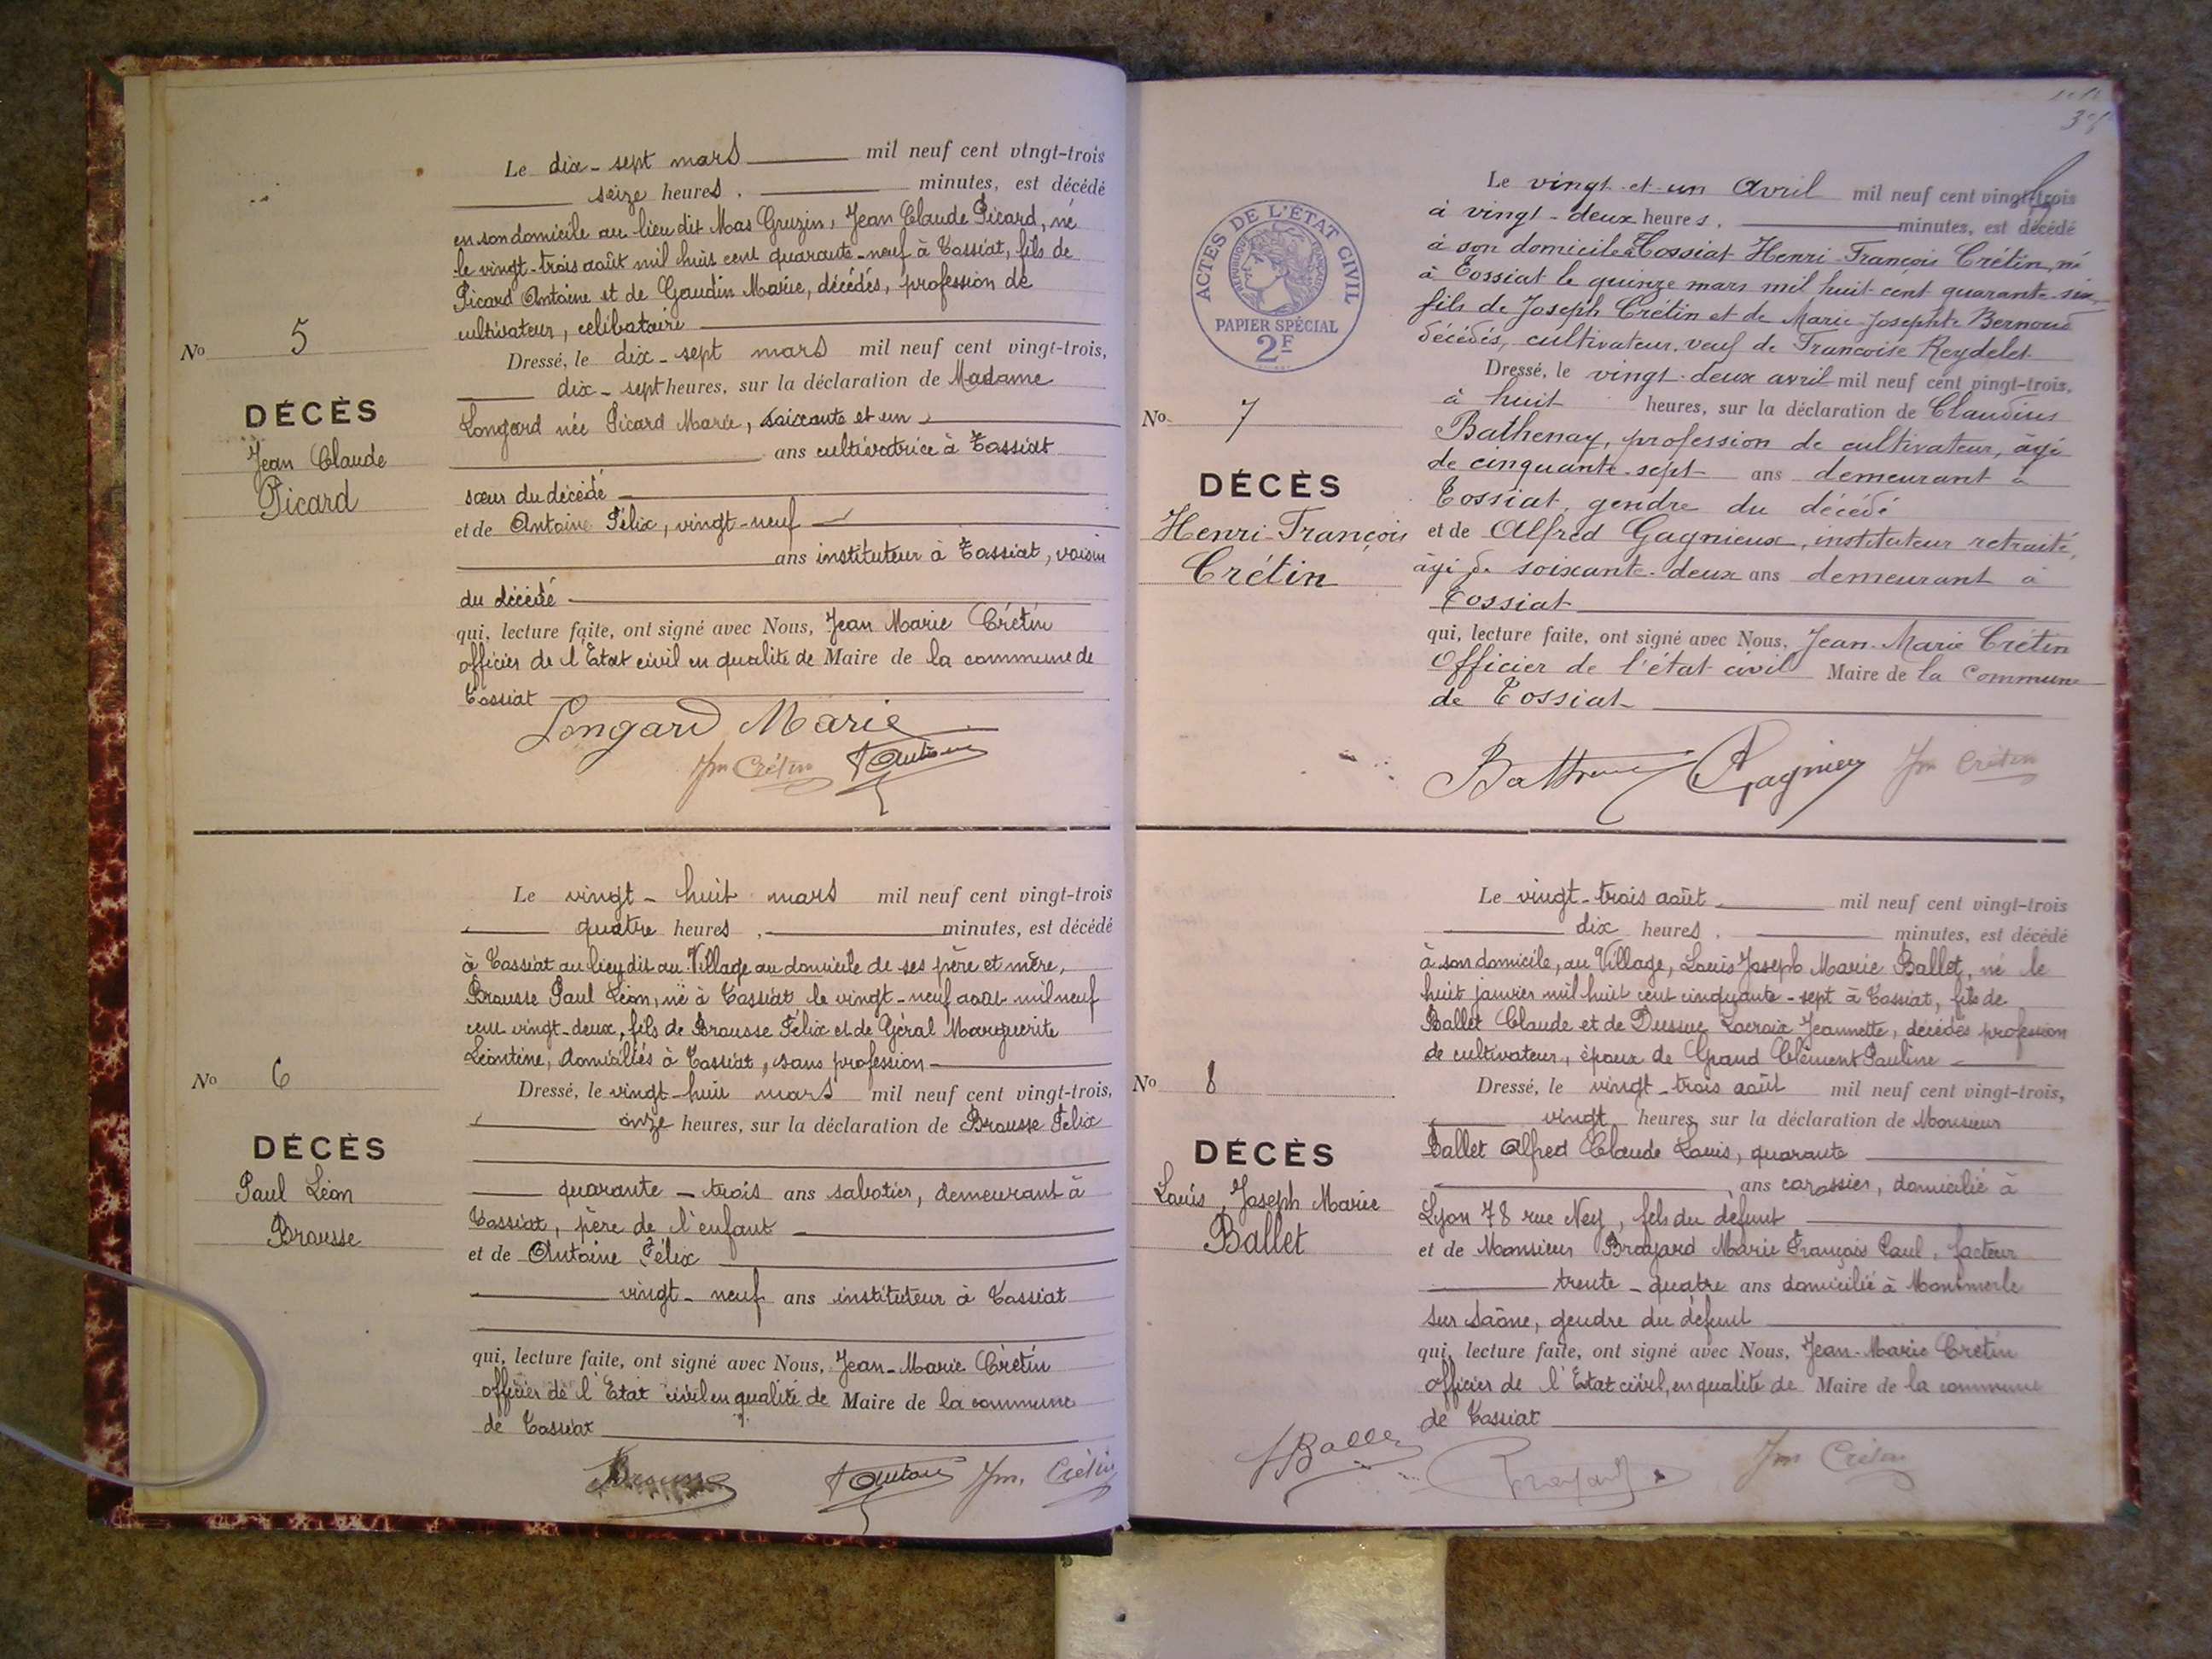 Le dix-sept mars mil neuf cent vingt-trois
seize heures, minutes, est décédé
en son domicile au lieu dit Mas Gruzin, Jean Claude Picard, né
le vingt-trois août mil huit cent quarante-neuf à Tossiat, fils de
Picard Antoine et de Gaudin Marie, décédés, profession de
cultivateur, célibataire
No 5
Dressé, le dix-sept mars mil neuf cent vingt-trois,
dix-sept heures, sur la déclaration de Madame
DÉCÈS
Jean Claude
Picard
Longard née Picard Marie, soixante et un
ans cultivatrice à Tossiat
sœur du décédé
et de Antoine Félix, vingt-neuf
ans instituteur à Tossiat, voisin
du décédé
qui, lecture faite, ont signé avec Nous, Jean Marie Crétin
officier de l'Etat civil en qualité de Maire de la commune de
Tossiat
Longard Marie
Jm Crétin F Antoine
Le vingt-huit mars mil neuf cent vingt-trois
quatre heures, minutes, est décédé
à Tossiat au lieu dit au Village au domicile de ses père et mère,
Brousse Paul Léon, né à Tossiat le vingt-neuf août mil neuf
cent vingt-deux, fils de Brousse Félix et de Géral Marguerite
Léontine, domiciliés à Tossiat, sans profession
No 6
Dressé, le vingt-huit mars mil neuf cent vingt-trois,
onze heures, sur la déclaration de Brousse Félix
DÉCÈS
Paul Léon
Brousse
quarante-trois ans sabotier, demeurant à
Tossiat, père de l'enfant
et de Antoine Félix
vingt-neuf ans instituteur à Tossiat
qui, lecture faite, ont signé avec Nous, Jean-Marie Crétin
officier de l'Etat civil en qualité de Maire de la commune
de Tossiat
Brousse F Antoine Jm. Crétin
ACTES DE L'ÉTAT CIVIL
RÉPUBLIQUE FRANÇAISE
PAPIER SPÉCIAL
2F
Le vingt-et-un Avril mil neuf cent vingt-trois
à vingt-deux heures, minutes, est décédé
à son domicile à Tossiat Henri-François Crétin, né
à Tossiat le quinze mars mil huit cent quarante-six
fils de Joseph Crétin et de Marie-Josephte Bernoud
décédés, cultivateur, veuf de Françoise Reydelet
No 7
Dressé, le vingt-deux avril mil neuf cent vingt-trois,
à huit heures, sur la déclaration de Claudius
DÉCÈS
Henri-François
Crétin
Bathenay, profession de cultivateur, âgé
de cinquante-sept ans demeurant à
Tossiat, gendre du décédé
et de Alfred Gagnieux, instituteur retraité,
âgé de soixante-deux ans demeurant à
Tossiat
qui, lecture faite, ont signé avec Nous, Jean-Marie Crétin
Officier de l'état civil Maire de la Commune
de Tossiat
Jm Crétin
Le vingt-trois août mil neuf cent vingt-trois
dix heures, minutes, est décédé
à son domicile, au Village, Louis Joseph Marie Ballet, né le
huit janvier mil huit cent cinquante-sept à Tossiat, fils de
Ballet Claude et de Dussuc Lacroix Jeannette, décédés profession
de cultivateur, époux de Grand Clément Pauline
No 8
Dressé, le vingt-trois août mil neuf cent vingt-trois,
vingt heures, sur la déclaration de Monsieur
DÉCÈS
Louis, Joseph Marie
Ballet
Ballet Alfred Claude Louis, quarante
ans carossier, domicilié à
Lyon 78 rue Ney, fils du défunt
et de Monsieur Broyard Marie François Paul, facteur
trente-quatre ans domicilié à Montmerle
sur Saône, gendre du défunt
qui, lecture faite, ont signé avec Nous, Jean-Marie Crétin
officier de l'Etat civil, en qualité de Maire de la commune
de Tossiat
Ballet Broyard Jm Crétin